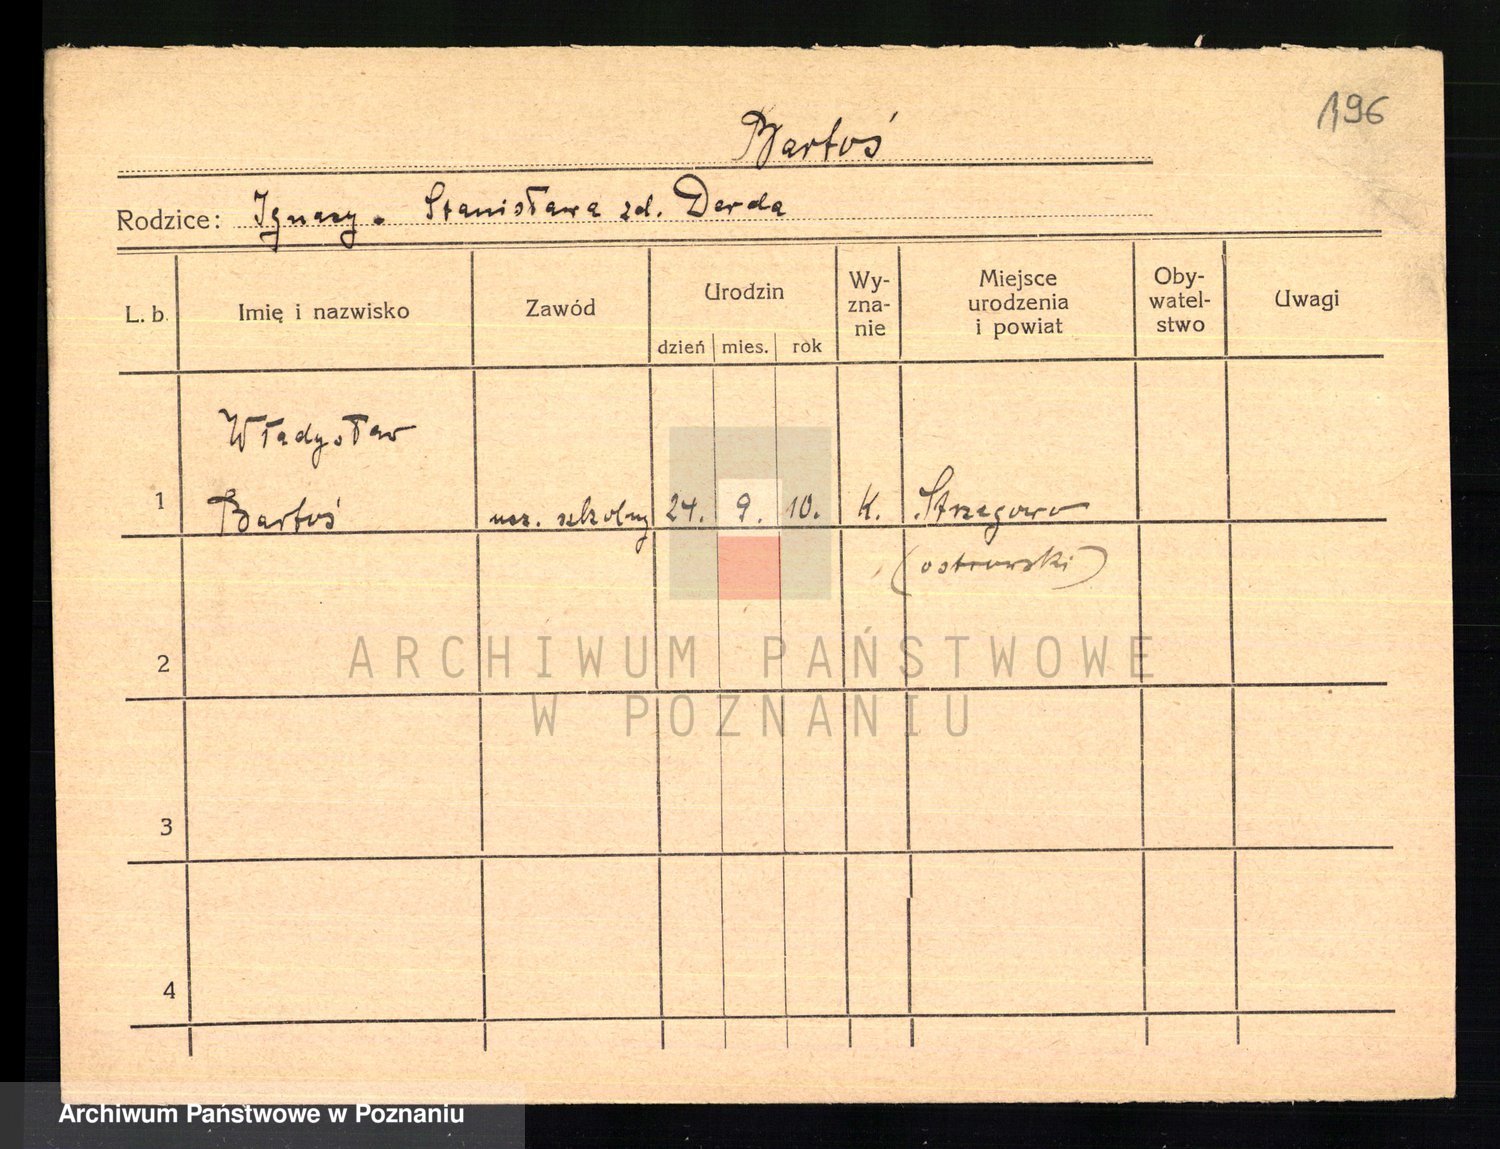 196
Bartoś
Rodzice: Ignacy. Stanisława zd. Derda
L. b.
Imię i nazwisko
Zawód
Urodzin
dzień mies. rok
Wy-
zna-
nie
Miejsce
urodzenia
i powiat
Oby-
watel-
stwo
Uwagi
Władysław
1 Bartoś ucz. szkolny 24. 9. 10. K. Strzegowo
(ostrowski)
2
3
4
ARCHIWUM PAŃSTWOWE
W POZNANIU
Archiwum Państwowe w Poznaniu